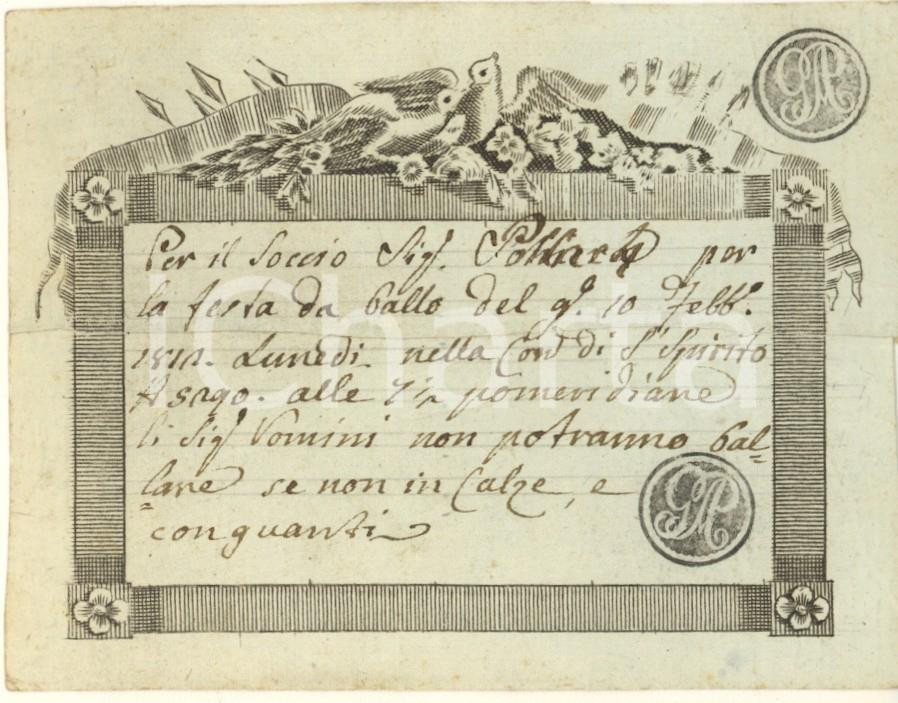 Per il Soccio Sig.r per
la festa da ballo del g.o 10 Febb.o
1812. Lunedi. nella Con.da di S. Spirito
Asago. alle 7 1/2 pomeridiane
li Sig.ri Uomini non potranno bal=
=lare se non in Calze, e
con guanti
GP
GP
iCharta